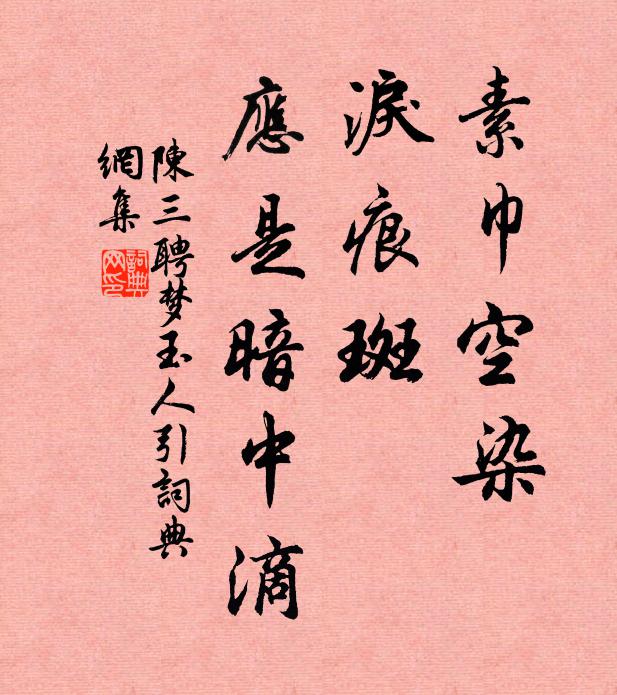 素巾空染
淚痕斑
應是暗中滴
陳三聘梦玉人引詞典
網集
詞典
网印